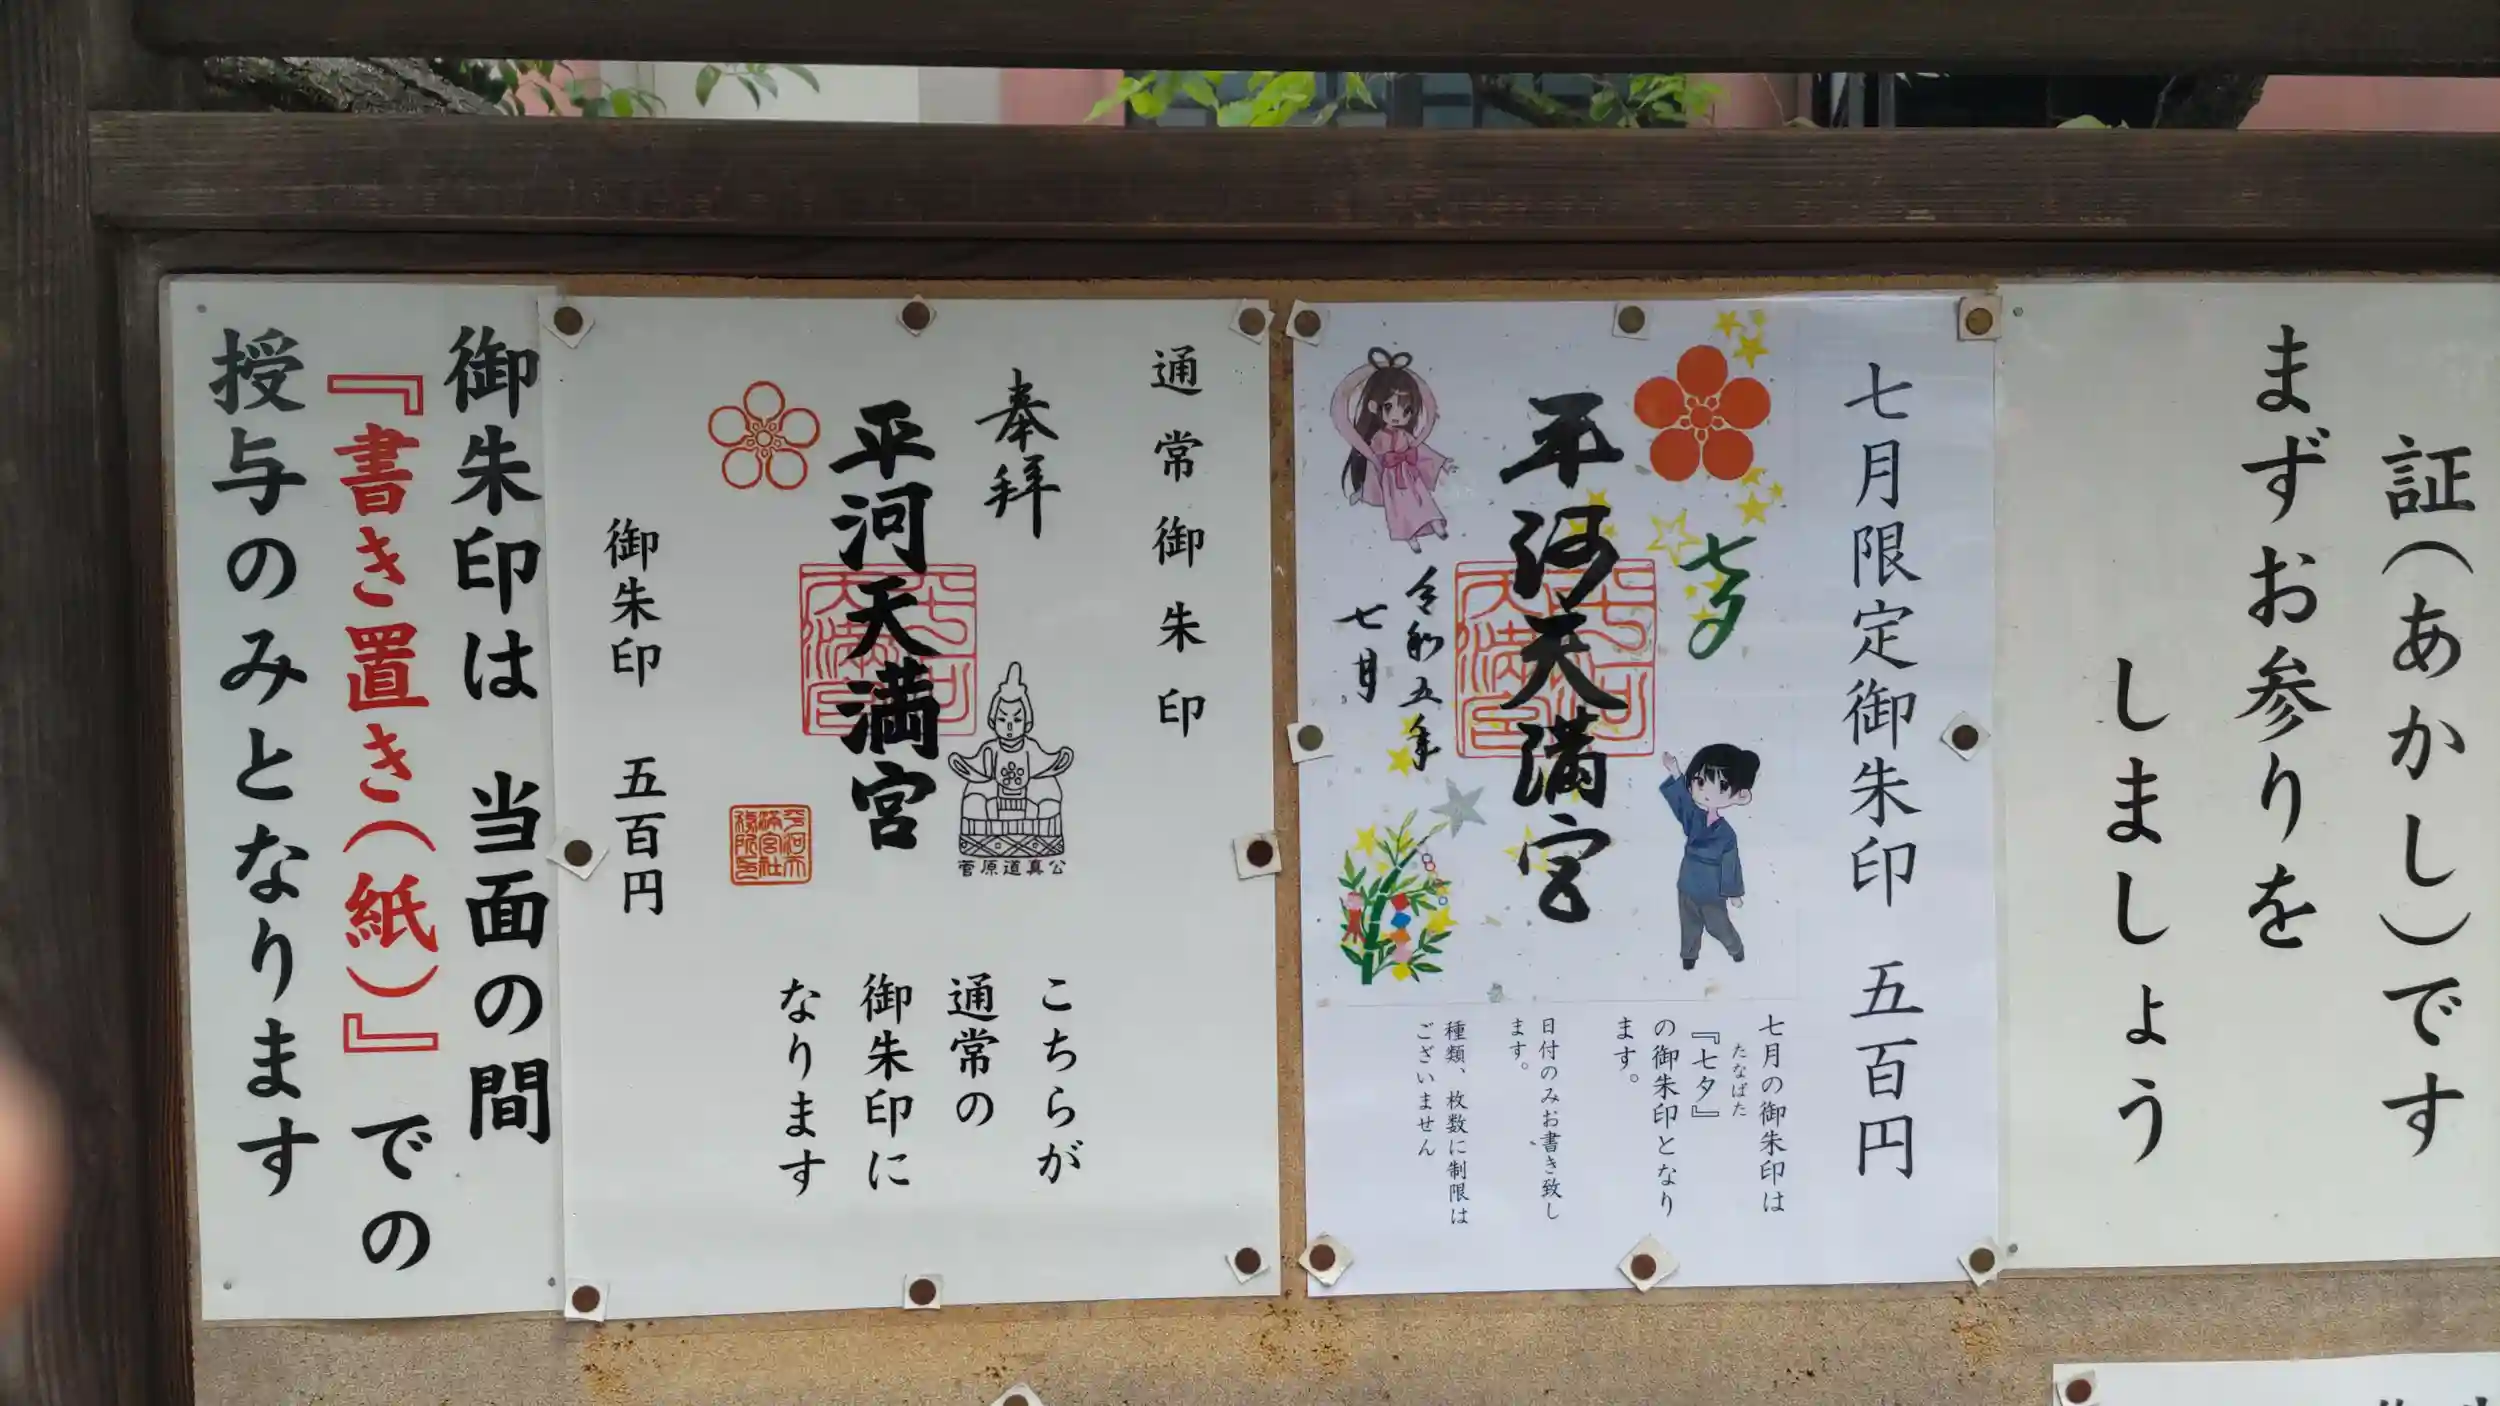 証(あかし)です
まずお参りを
しましょう
七月限定御朱印 五百円
七夕
平河天満宮
令和五年
七月
七月の御朱印は
たなばた
『七夕』
の御朱印となり
ます。
日付のみお書き致し
ます。
種類、枚数に制限は
ございません
通常御朱印
奉拝
平河天満宮
菅原道真公
御朱印 五百円
こちらが
通常の
御朱印に
なります
御朱印は 当面の間
『書き置き(紙)』での
授与のみとなります